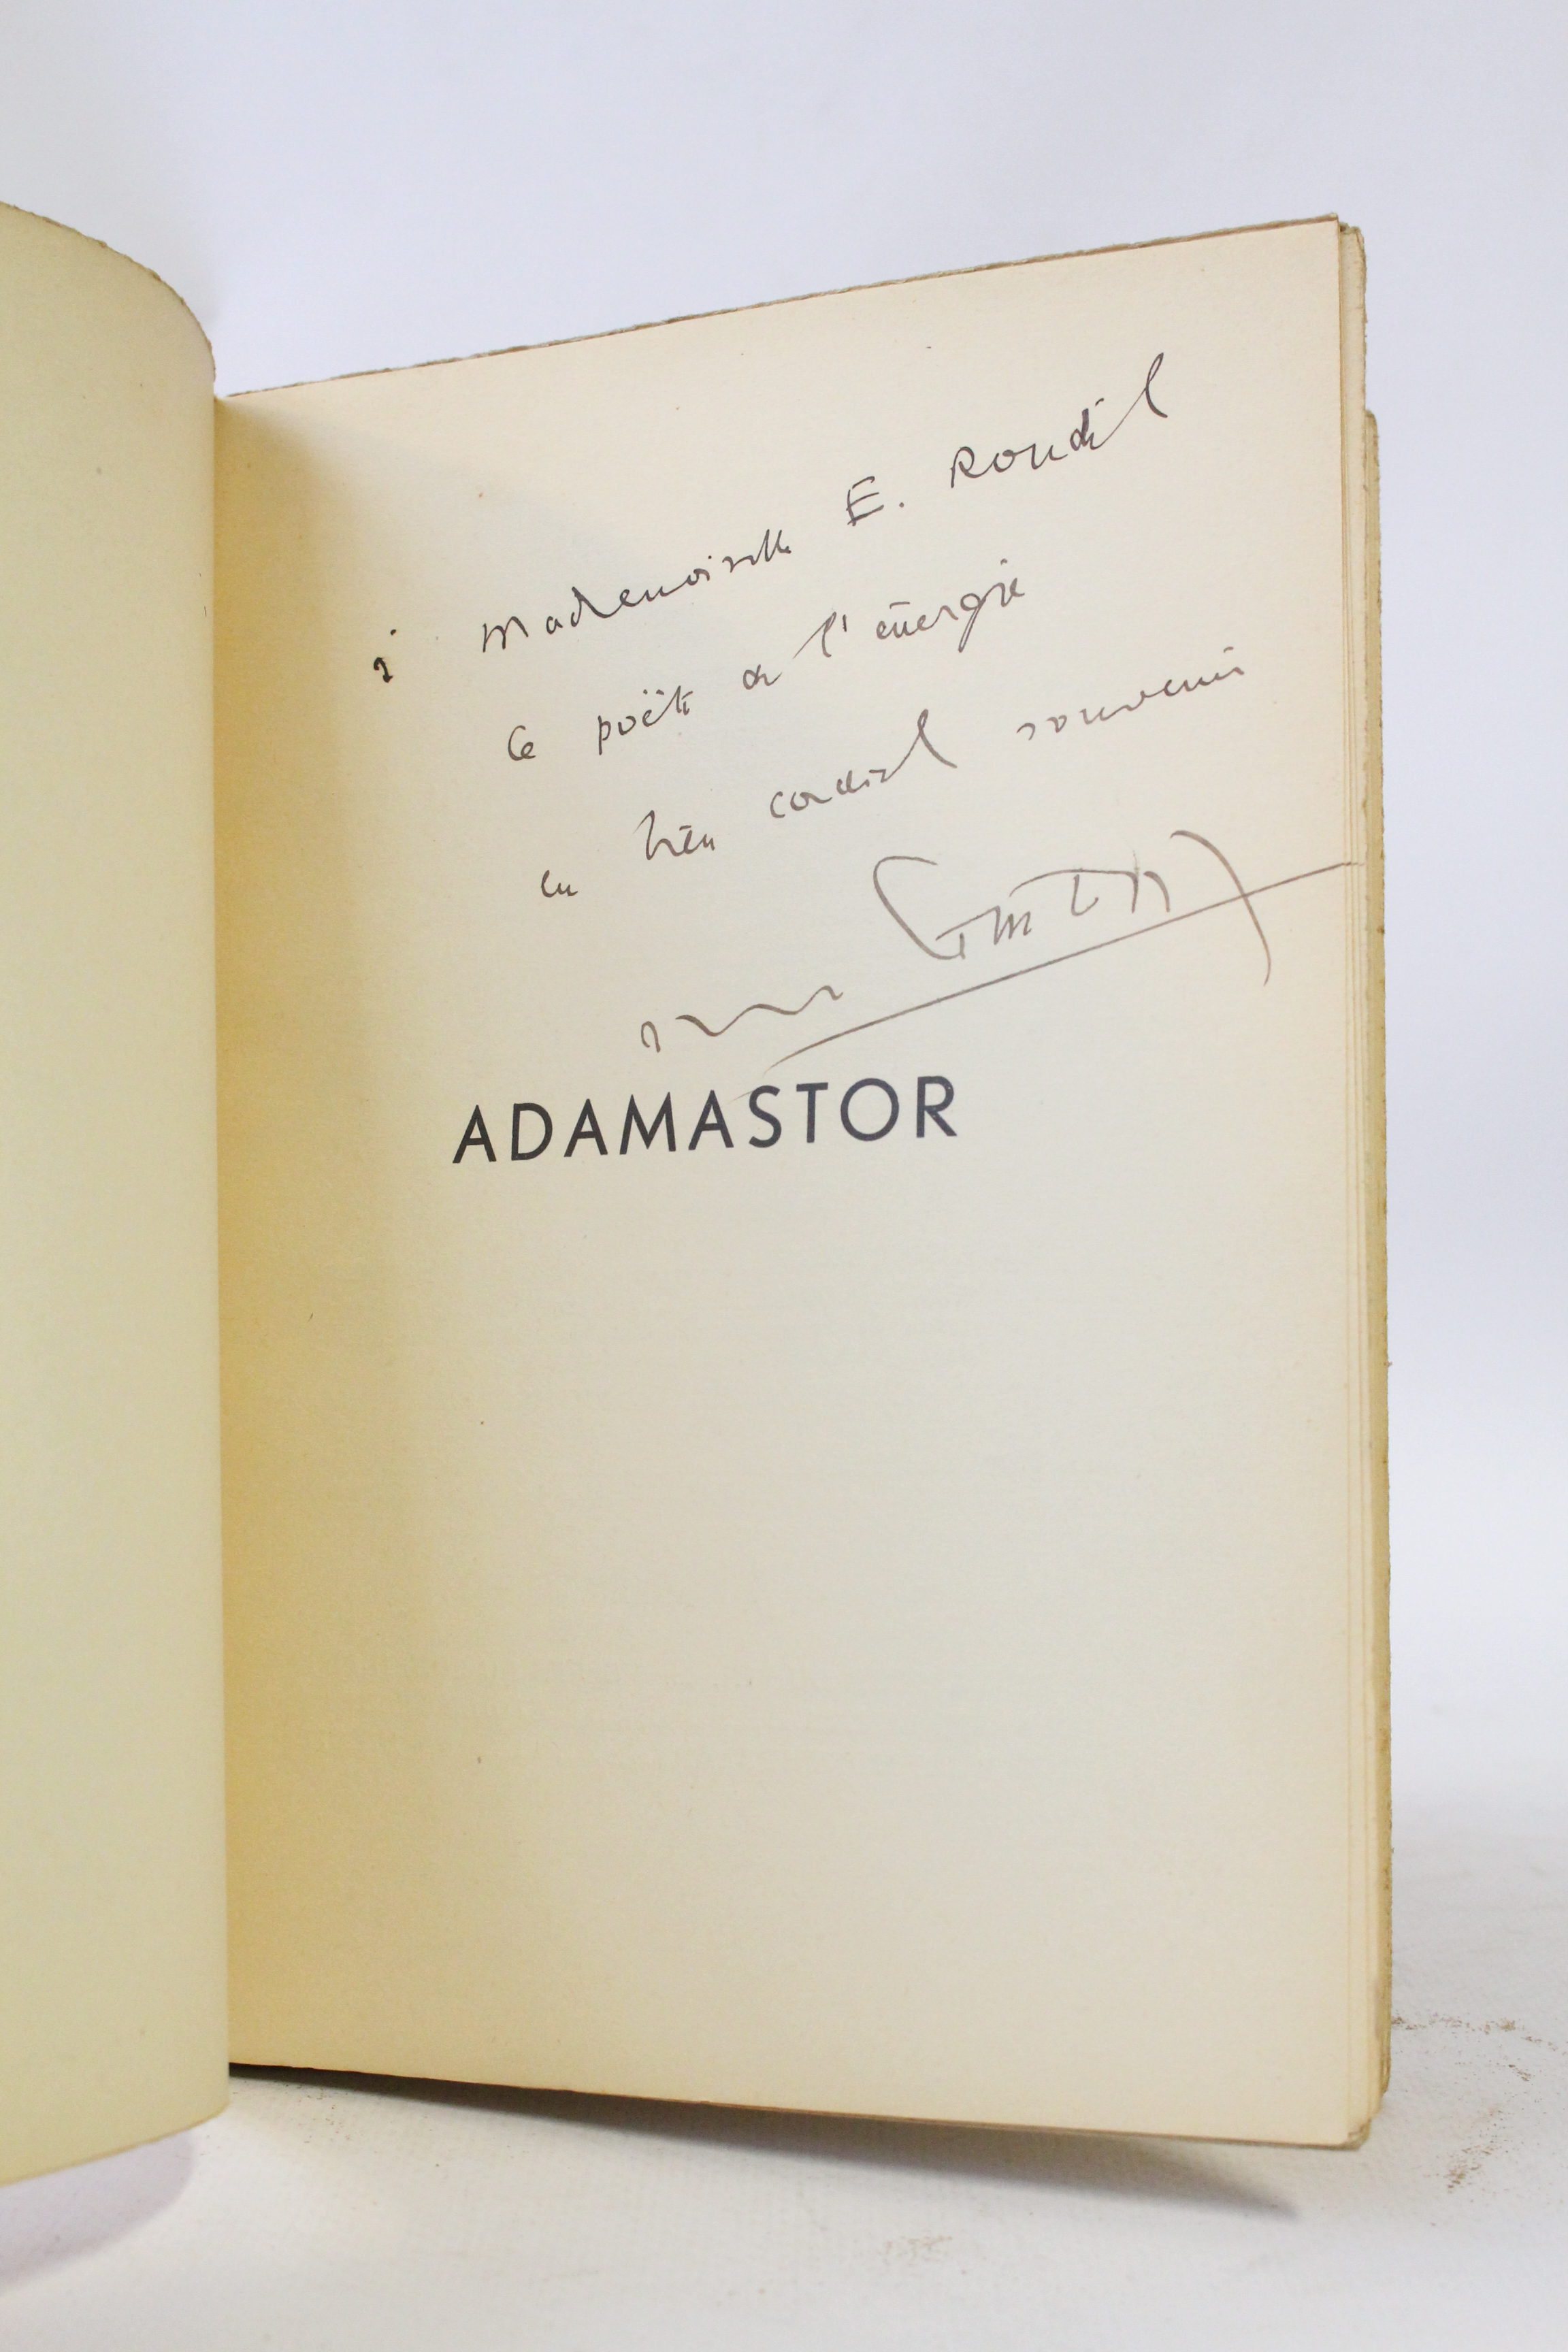 à Mademoiselle E. Roudil
Ce poëte de l'énergie
en bien cordial souvenir
ADAMASTOR